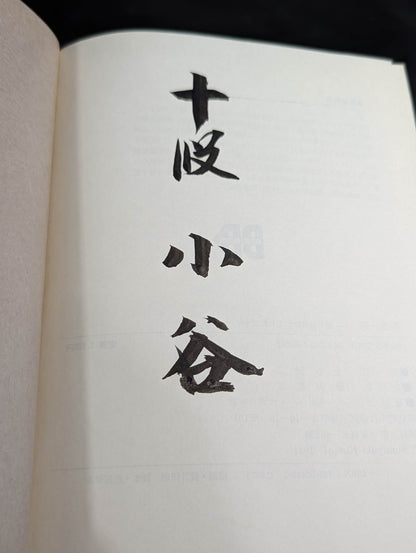 十段 小谷